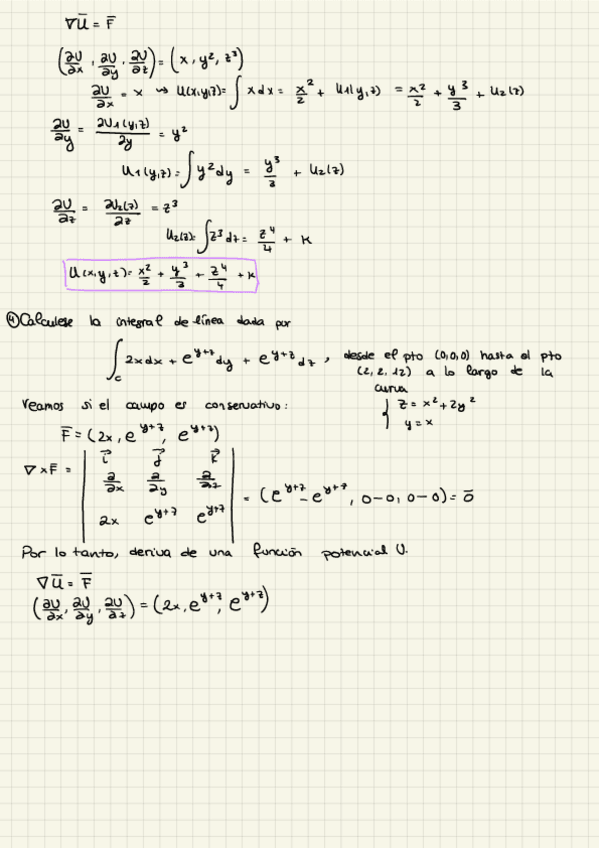 ∇U̅ = F̅
(∂U/∂x, ∂U/∂y, ∂U/∂z) = (x, y², z³)
∂U/∂x = x → U(x,y,z) = ∫ x dx = x²/2 + U₁(y,z) = x²/2 + y³/3 + U₂(z)
∂U/∂y = ∂U₁(y,z)/∂y = y²
U₁(y,z) = ∫ y² dy = y³/3 + U₂(z)
∂U/∂z = ∂U₂(z)/∂z = z³
U₂(z) = ∫ z³ dz = z⁴/4 + K
U(x,y,z) = x²/2 + y³/3 + z⁴/4 + K
④ Calculese la integral de línea dada por
∫_c 2x dx + e^{y+z} dy + e^{y+z} dz , desde el pto (0,0,0) hasta el pto
(2, 2, 12) a lo largo de la
curva
{ z = x² + 2y²
y = x
Veamos si el campo es conservativo:
F̅ = (2x, e^{y+z}, e^{y+z})
∇×F̅ = | i⃗ j⃗ k⃗
∂/∂x ∂/∂y ∂/∂z
2x e^{y+z} e^{y+z} | = (e^{y+z} - e^{y+z}, 0-0, 0-0) = 0̅
Por lo tanto, deriva de una función potencial U.
∇U̅ = F̅
(∂U/∂x, ∂U/∂y, ∂U/∂z) = (2x, e^{y+z}, e^{y+z})